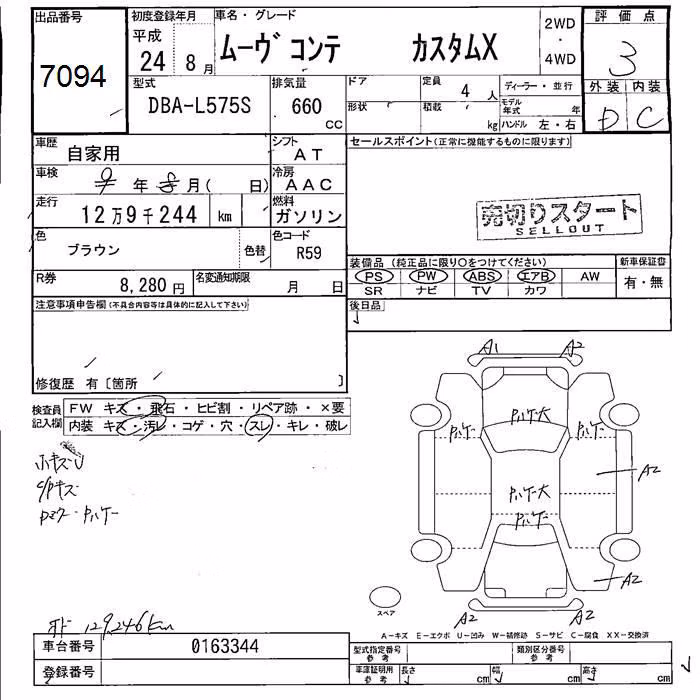 出品番号 初度登録年月 車名・グレード 2WD・4WD 評価点
7094 平成 24 8月 ムーヴ コンテ カスタムX 3
型式 排気量 ドア 定員 4 人 ディーラー・並行 外装 内装
DBA-L575S 660 CC 形状 積載 kg モデル年式 年 D C
ハンドル 左・右
車歴 自家用 シフト AT セールスポイント(正常に機能するものに限ります)
車検 年 月( 日) 冷房 AAC
走行 12万9千244 km 燃料 ガソリン
売切りスタート
SELLOUT
色 ブラウン 色替 色コード R59
装備品(純正品に限り○をつけてください) 新車保証書
PS PW ABS エアB AW 有・無
SR ナビ TV カワ
R券 8,280円 名変通知期限 月 日
注意事項申告欄(不具合内容等は具体的に記入して下さい) 後日品
修復歴 有〔箇所 〕
検査員記入欄 FW キズ・飛石・ヒビ割・リペア跡・×要
内装 キズ・汚レ・コゲ・穴・スレ・キレ・破レ
A1 A2
Pハゲ大
Pハゲ Pハゲ
小キズU
Pハゲ大 A2
C/Pキズ
Pハゲ
Pハゲ
A2
スペア
A2 A2
オド 129,246km
A-キズ E-エクボ U-凹み W-補修跡 S-サビ C-腐食 XX-交換済
車台番号 0163344 型式指定番号参考 類別区分番号参考
登録番号 車庫証明用参考 長さ cm 幅 cm 高さ cm